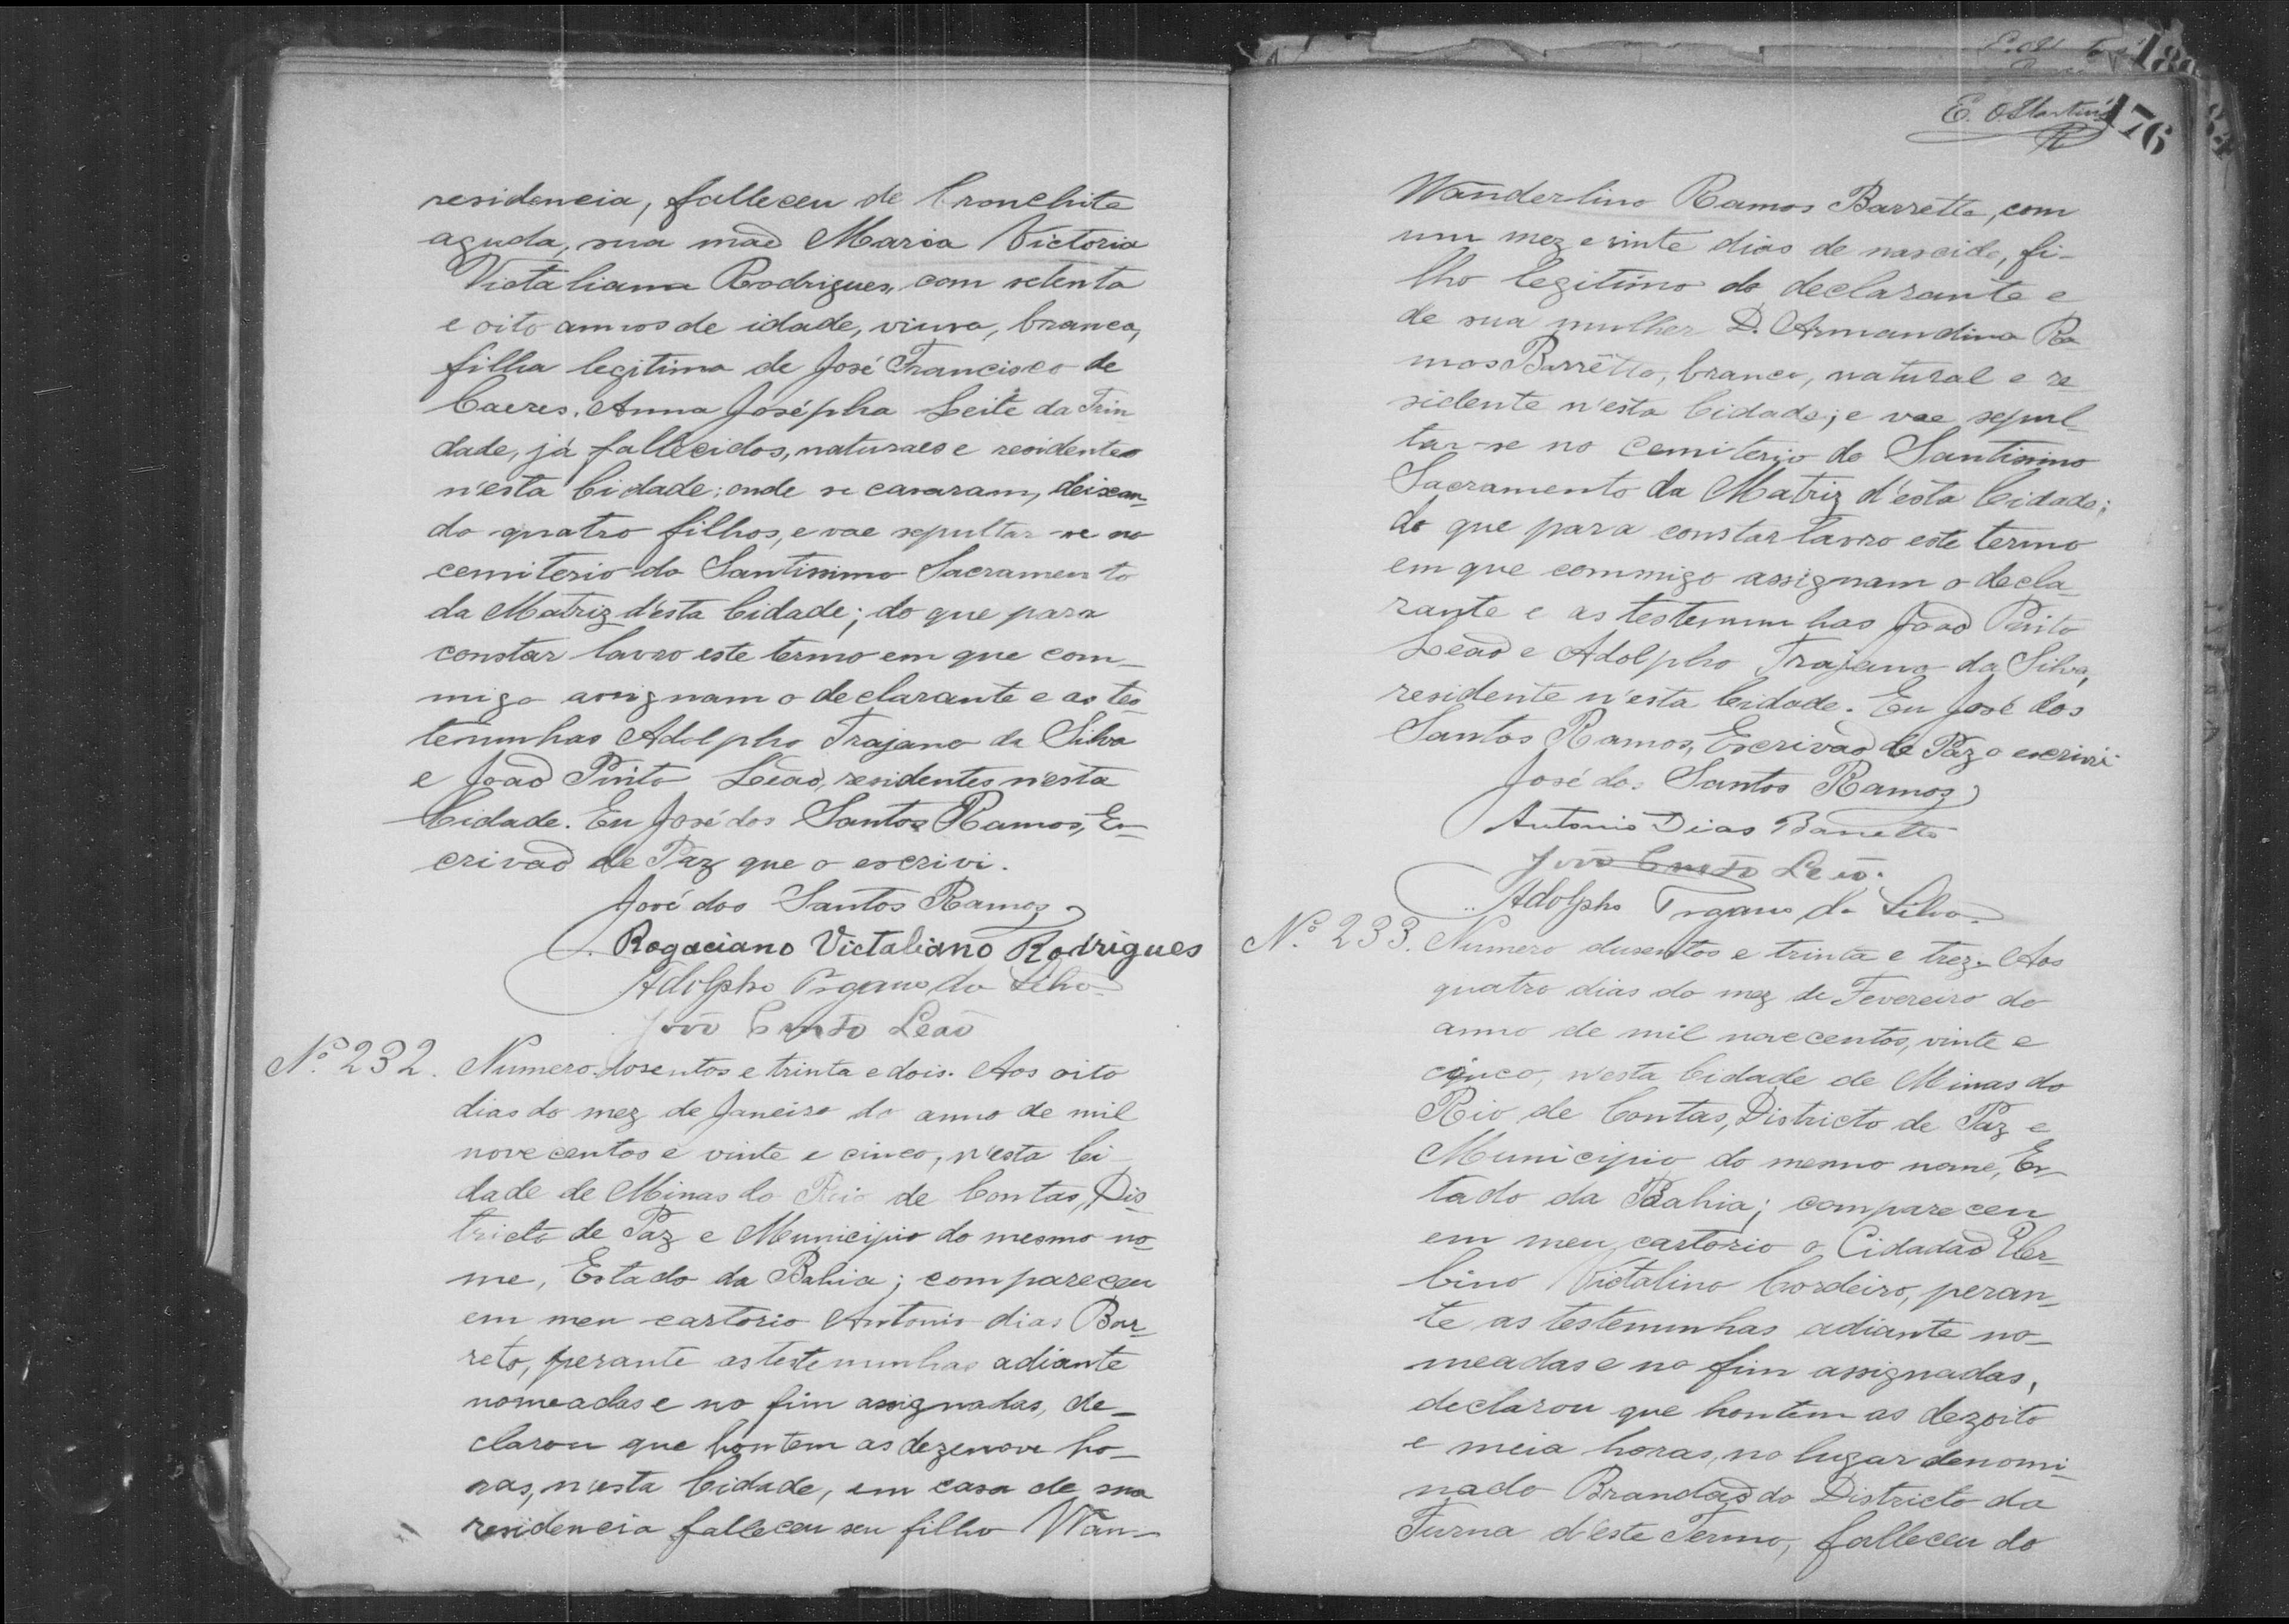 residencia, falleceu de bronchite
aguda, sua maẽ Maria Victoria
Victaliana Rodrigues, com setenta
e oito annos de idade, viuva, branca,
filha legitima de José Francisco de
Caeres, Anna Josépha Leite da Trin
dade, já fallecidos, naturaes e residentes
n'esta Cidade; onde se casaram, deixan-
do quatro filhos, e vae sepultar-se no
cemiterio do Santissimo Sacramento
da Matriz d'esta Cidade; do que para
constar lavro este termo em que com-
migo assignam o declarante e as tes-
temunhas Adolpho Trajano da Silva
e João Pinto Leão, residentes n'esta
Cidade. Eu José dos Santos Ramos, Es-
crivão de Paz que o escrivi.
José dos Santos Ramos
Rogaciano Victaliano Rodrigues
Adolpho Trgano da Silva
João Pinto Leão
Nº 232. Numero dosentos e trinta e dois. Aos oito
dias do mez de Janeiro do anno de mil
novecentos e vinte e cinco, n'esta Ci
dade de Minas do Rio de Contas, Dis-
tricto de Paz e Municipio do mesmo no-
me, Estado da Bahia; compareceu
em meu cartorio Antonio dias Bar-
reto, perante as testemunhas adiante
nomeadas e no fim assignadas, de-
clarou que hontem as dezenove ho-
ras, n'esta Cidade, em casa de sua
residencia falleceu seu filho Wan-
176
E. Martins
Wanderlino Ramos Barretto, com
um mez e vinte dias de nascido, fi-
lho legitimo do declarante e
de sua mulher D. Armandina Ra
mos Barrêtto, branco, natural e re
sidente n'esta Cidade; e vae sepul-
tar-se no cemiterio do Santissimo
Sacramento da Matriz d'esta Cidade;
do que para constar lavro este termo
em que commigo assignam o decla-
rante e as testemunhas João Pinto
Leão e Adolpho Trajano da Silva,
residente n'esta Cidade. Eu José dos
Santos Ramos, Escrivão de Paz o escrivi
José dos Santos Ramos
Antonio Dias Barretto
João Pinto Leão.
Adolpho Trgano da Silva
Nº 233. Numero dusentos e trinta e trez. Aos
quatro dias do mez de Fevereiro do
anno de mil novecentos, vinte e
cinco, n'esta Cidade de Minas do
Rio de Contas, Districto de Paz e
Municipio do mesmo nome, Es-
tado da Bahia; compareceu
em meu cartorio o Cidadão Ur-
bino Victalino Cordeiro, peran-
te as testemunhas adiante no-
meadas e no fim assignadas,
declarou que hontem as dezoito
e meia horas, no lugar denomi-
nado Brandão do Districto da
Furna d'este Termo, falleceu do